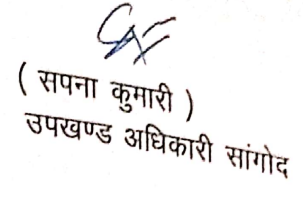 ( सपना कुमारी )
उपखण्ड अधिकारी सांगोद